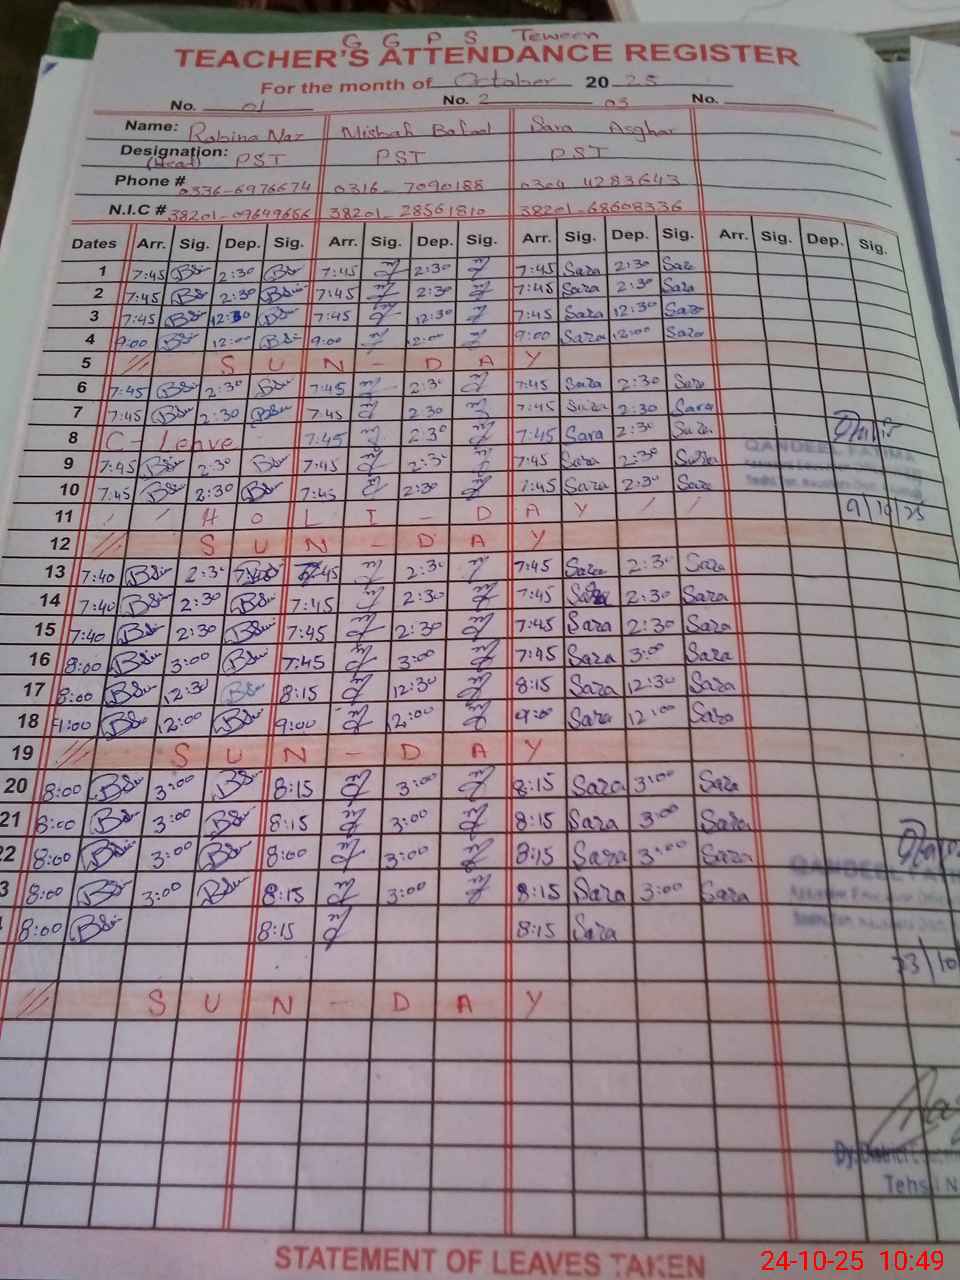 G G P S Teween
TEACHER'S ATTENDANCE REGISTER
For the month of October 20 25
No. 01 No. 2 03 No.
Name: Rabina Naz Misbah Sara Asghar
Designation: (Head) PST PST PST
Phone # 0336-6976674 0316-7090188 0304 4283643
N.I.C # 38201-09649656 38201-28561810 38201-68608336
Dates Arr. Sig. Dep. Sig. Arr. Sig. Dep. Sig. Arr. Sig. Dep. Sig. Arr. Sig. Dep. Sig.
1 7:45 2:30 7:45 2:30 7:45 Sara 2:30 Sara
2 7:45 2:30 7:45 2:30 7:45 Sara 2:30 Sara
3 7:45 12:30 7:45 12:30 7:45 Sara 12:30 Sara
4 9:00 12:00 9:00 12:00 9:00 Sara 12:00 Sara
5 SUN-DAY
6 7:45 2:30 7:45 2:30 7:45 Sara 2:30 Sara
7 7:45 2:30 7:45 2:30 7:45 Sara 2:30 Sara
8 C-Leave 7:45 2:30 7:45 Sara 2:30 Sara
9 7:45 2:30 7:45 2:30 7:45 Sara 2:30 Sara
10 7:45 2:30 7:45 2:30 7:45 Sara 2:30 Sara
QANDEEL FATIMA
9/10/25
11 HOLI-DAY
12 SUN-DAY
13 7:40 2:30 7:45 2:30 7:45 Sara 2:30 Sara
14 7:40 2:30 7:45 2:30 7:45 Sara 2:30 Sara
15 7:40 2:30 7:45 2:30 7:45 Sara 2:30 Sara
16 8:00 3:00 7:45 3:00 7:45 Sara 3:00 Sara
17 8:00 12:30 8:15 12:30 8:15 Sara 12:30 Sara
18 12:00 9:00 12:00 9:00 Sara 12:00 Sara
19 SUN-DAY
20 8:00 3:00 8:15 3:00 8:15 Sara 3:00 Sara
21 8:00 3:00 8:15 3:00 8:15 Sara 3:00 Sara
22 8:00 3:00 8:00 3:00 8:15 Sara 3:00 Sara
3 8:00 3:00 8:15 3:00 8:15 Sara 3:00 Sara
8:00 8:15 8:15 Sara
QANDEEL FATI
23/10
SUN-DAY
Dy. District
Tehsil N
STATEMENT OF LEAVES TAKEN
24-10-25 10:49